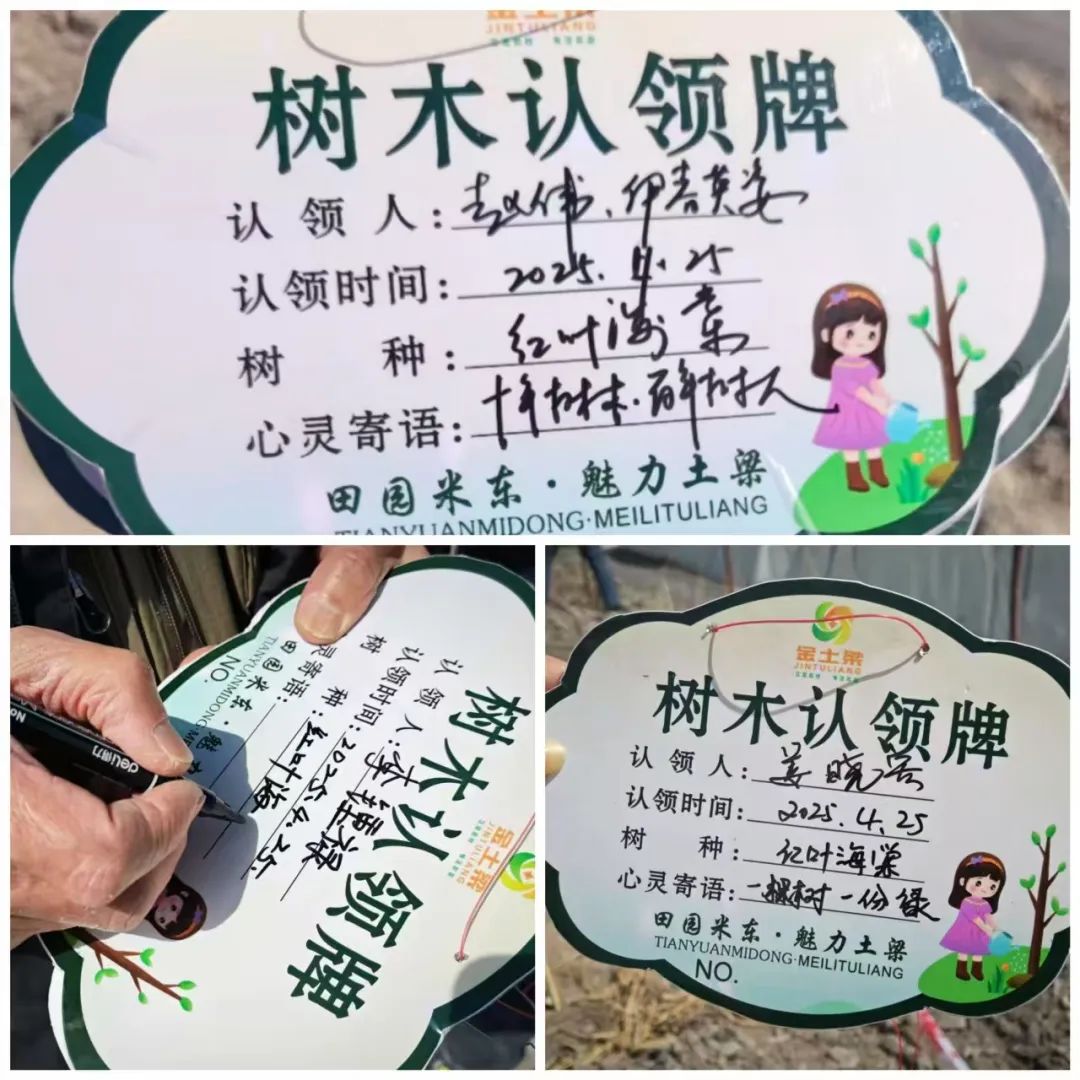 金土梁
JINTULIANG
树木认领牌
认领人:赵伟、伊春英姿
认领时间:2025.4.25
树种:红叶海棠
心灵寄语:十年树木.百年树人
田园米东·魅力土梁
TIANYUANMIDONG·MEILITULIANG
金土梁
JINTULIANG
树木认领牌
认领人:李
认领时间:2025.4.25
树种:红叶海
灵寄语:
田园米东·魅
TIANYUANMIDONG·ME
NO.
deli得力
金土梁
JINTULIANG
树木认领牌
认领人:姜晓
认领时间:2025.4.25
树种:红叶海棠
心灵寄语:一棵树一份绿
田园米东·魅力土梁
TIANYUANMIDONG·MEILITULIANG
NO.